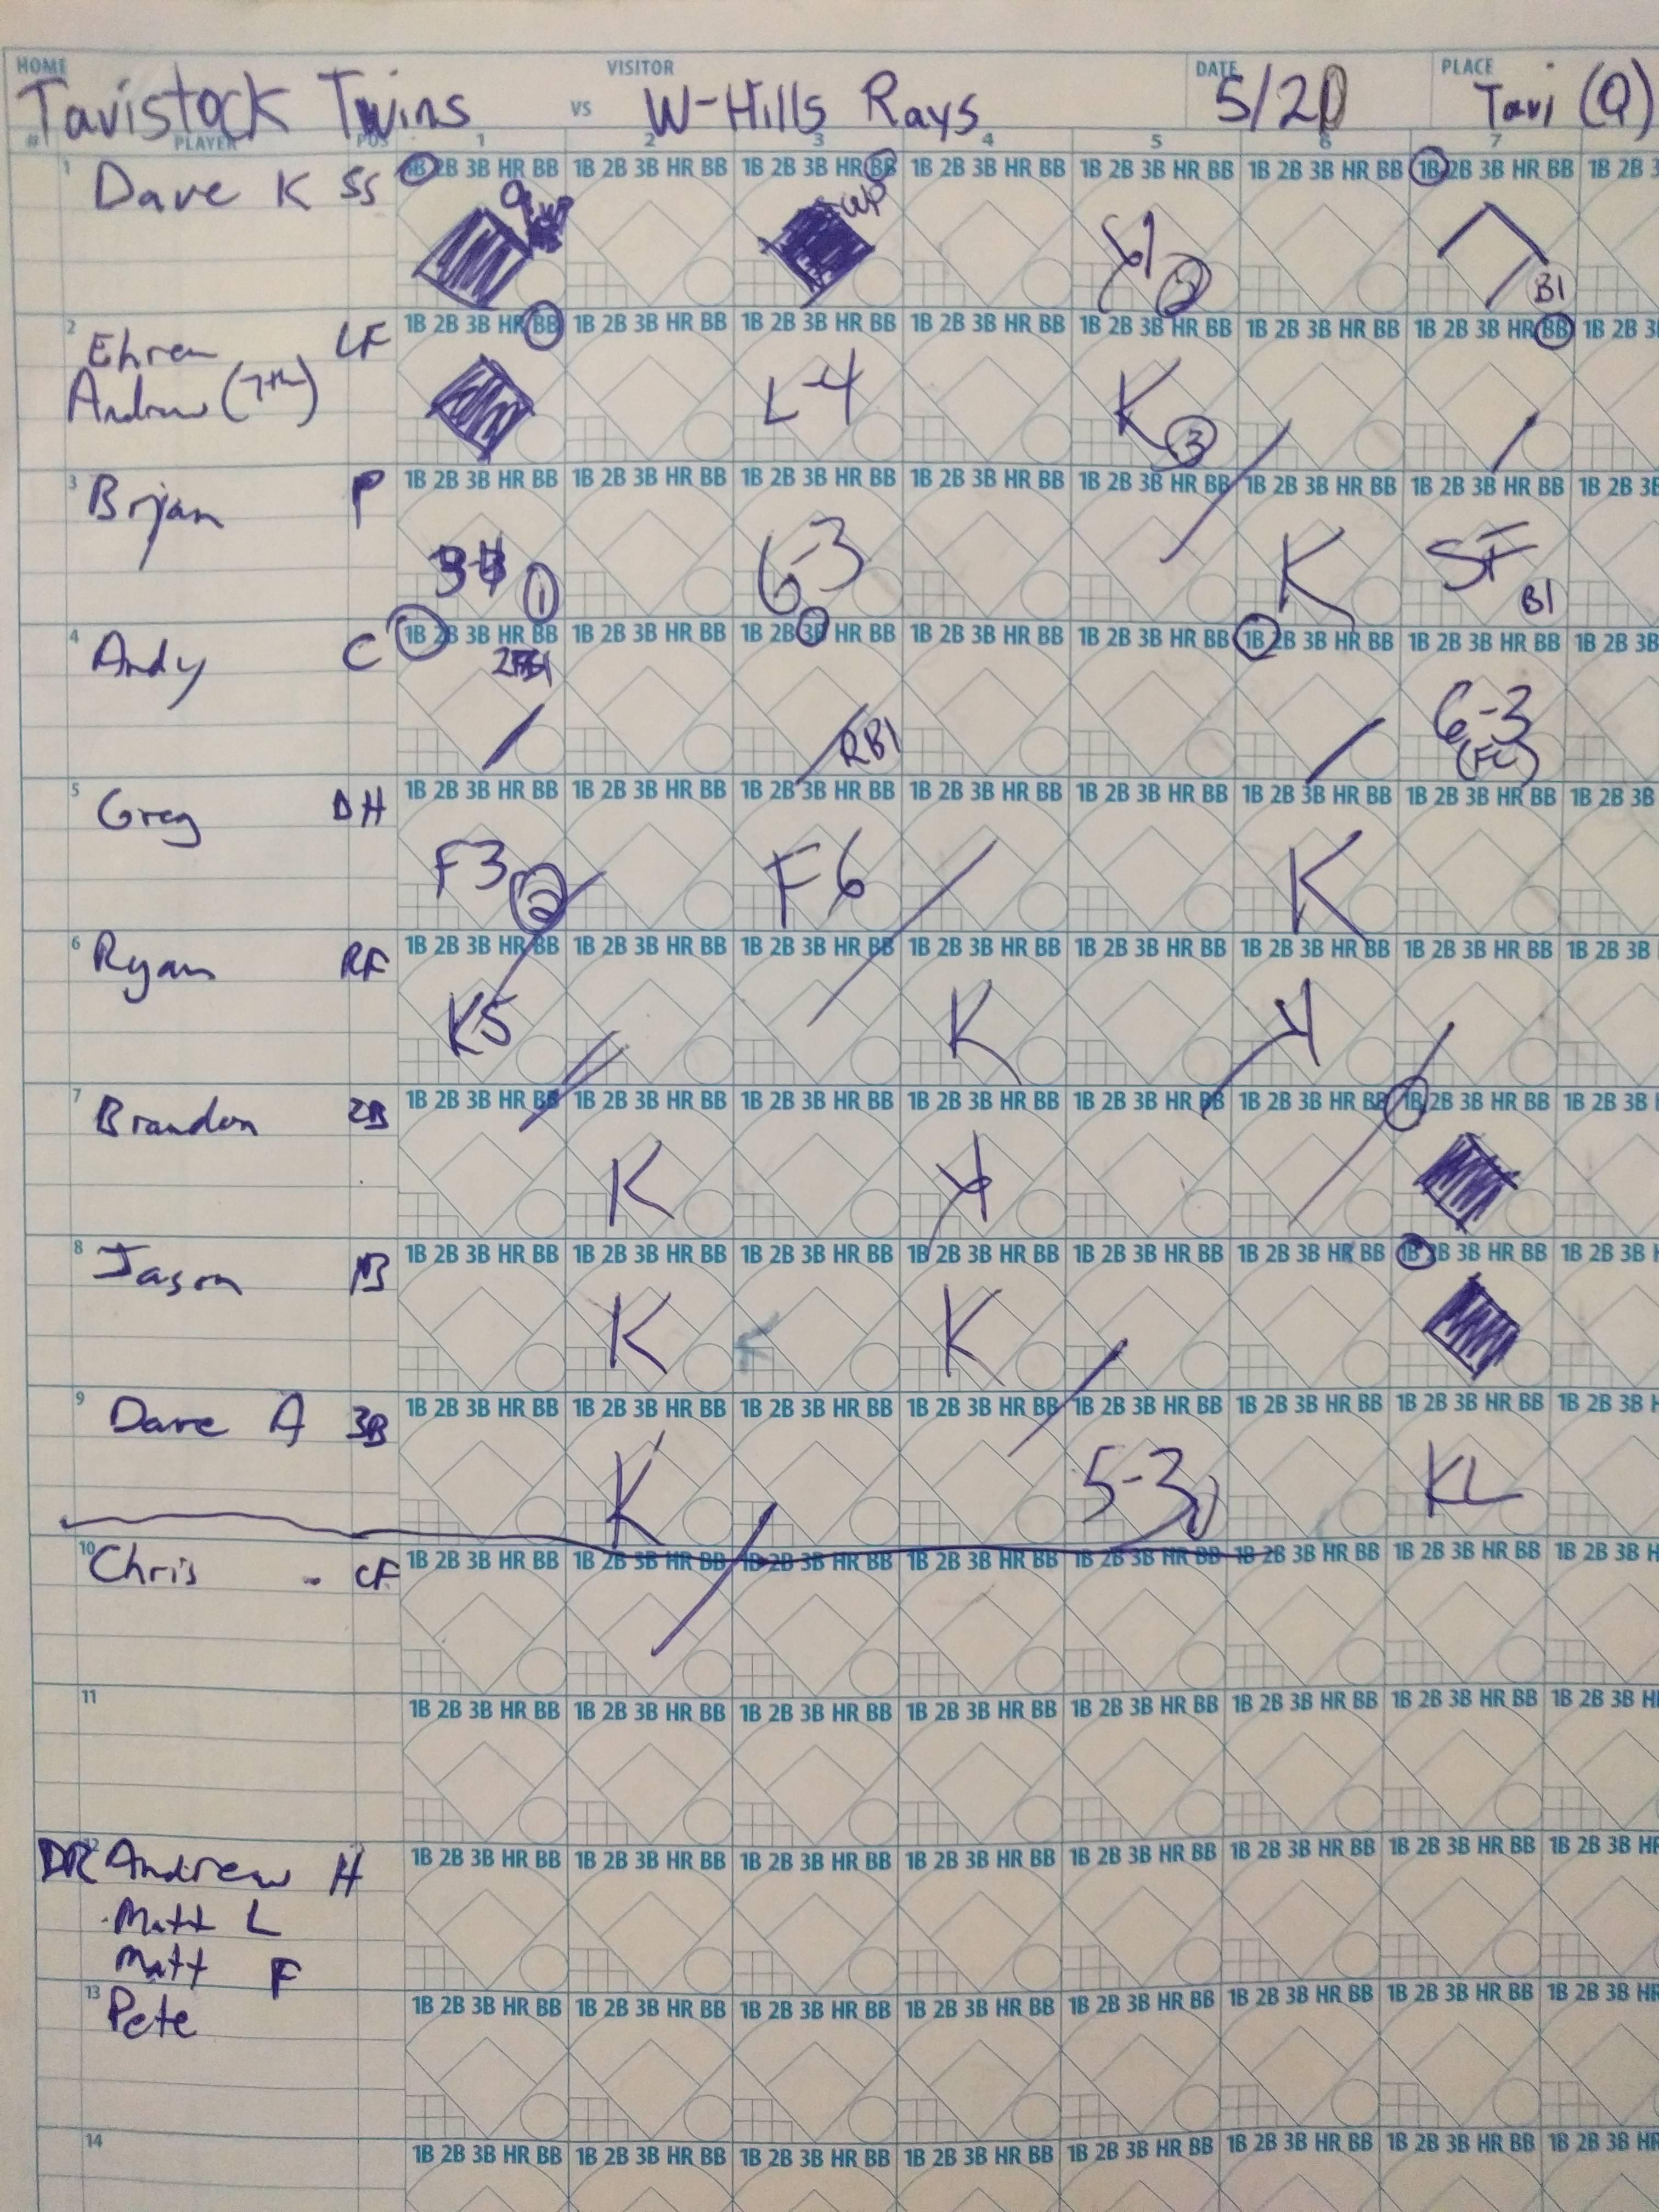 HOME VISITOR DATE PLACE
Tavistock Twins vs W-Hills Rays 5/20 Tavi (Q)
# PLAYER POS 1 2 3 4 5 6 7
1 Dave K SS 1B 2B 3B HR BB 1B 2B 3B HR BB 1B 2B 3B HR BB 1B 2B 3B HR BB 1B 2B 3B HR BB 1B 2B 3B HR BB 1B 2B 3B HR BB 1B 2B 3
WP
BI
2 Ehren LF 1B 2B 3B HR BB 1B 2B 3B HR BB 1B 2B 3B HR BB 1B 2B 3B HR BB 1B 2B 3B HR BB 1B 2B 3B HR BB 1B 2B 3B HR BB 1B 2B 3
Andrew (7th) L-4 K 3
3 Bryan P 1B 2B 3B HR BB 1B 2B 3B HR BB 1B 2B 3B HR BB 1B 2B 3B HR BB 1B 2B 3B HR BB 1B 2B 3B HR BB 1B 2B 3B HR BB 1B 2B 3B
1 6-3 K SF BI
4 Andy C 1B 2B 3B HR BB 1B 2B 3B HR BB 1B 2B 3B HR BB 1B 2B 3B HR BB 1B 2B 3B HR BB 1B 2B 3B HR BB 1B 2B 3B HR BB 1B 2B 3B
RBI 6-3
(FC)
5 Greg DH 1B 2B 3B HR BB 1B 2B 3B HR BB 1B 2B 3B HR BB 1B 2B 3B HR BB 1B 2B 3B HR BB 1B 2B 3B HR BB 1B 2B 3B HR BB 1B 2B 3B
F3 2 F6 K
6 Ryan RF 1B 2B 3B HR BB 1B 2B 3B HR BB 1B 2B 3B HR BB 1B 2B 3B HR BB 1B 2B 3B HR BB 1B 2B 3B HR BB 1B 2B 3B HR BB 1B 2B 3B
K5 K
7 Brandon 2B 1B 2B 3B HR BB 1B 2B 3B HR BB 1B 2B 3B HR BB 1B 2B 3B HR BB 1B 2B 3B HR BB 1B 2B 3B HR BB 1B 2B 3B HR BB 1B 2B 3B
K
8 Jason 1B 1B 2B 3B HR BB 1B 2B 3B HR BB 1B 2B 3B HR BB 1B 2B 3B HR BB 1B 2B 3B HR BB 1B 2B 3B HR BB 1B 2B 3B HR BB 1B 2B 3B H
K K K
9 Dave A 3B 1B 2B 3B HR BB 1B 2B 3B HR BB 1B 2B 3B HR BB 1B 2B 3B HR BB 1B 2B 3B HR BB 1B 2B 3B HR BB 1B 2B 3B HR BB 1B 2B 3B H
K 5-3 KL
10 Chris - CF 1B 2B 3B HR BB 1B 2B 3B HR BB 1B 2B 3B HR BB 1B 2B 3B HR BB 1B 2B 3B HR BB 1B 2B 3B HR BB 1B 2B 3B HR BB 1B 2B 3B H
11 1B 2B 3B HR BB 1B 2B 3B HR BB 1B 2B 3B HR BB 1B 2B 3B HR BB 1B 2B 3B HR BB 1B 2B 3B HR BB 1B 2B 3B HR BB 1B 2B 3B HR
12 Andrew H 1B 2B 3B HR BB 1B 2B 3B HR BB 1B 2B 3B HR BB 1B 2B 3B HR BB 1B 2B 3B HR BB 1B 2B 3B HR BB 1B 2B 3B HR BB 1B 2B 3B HR
Matt L
Matt F
13 Pete 1B 2B 3B HR BB 1B 2B 3B HR BB 1B 2B 3B HR BB 1B 2B 3B HR BB 1B 2B 3B HR BB 1B 2B 3B HR BB 1B 2B 3B HR BB 1B 2B 3B HR
14 1B 2B 3B HR BB 1B 2B 3B HR BB 1B 2B 3B HR BB 1B 2B 3B HR BB 1B 2B 3B HR BB 1B 2B 3B HR BB 1B 2B 3B HR BB 1B 2B 3B HR